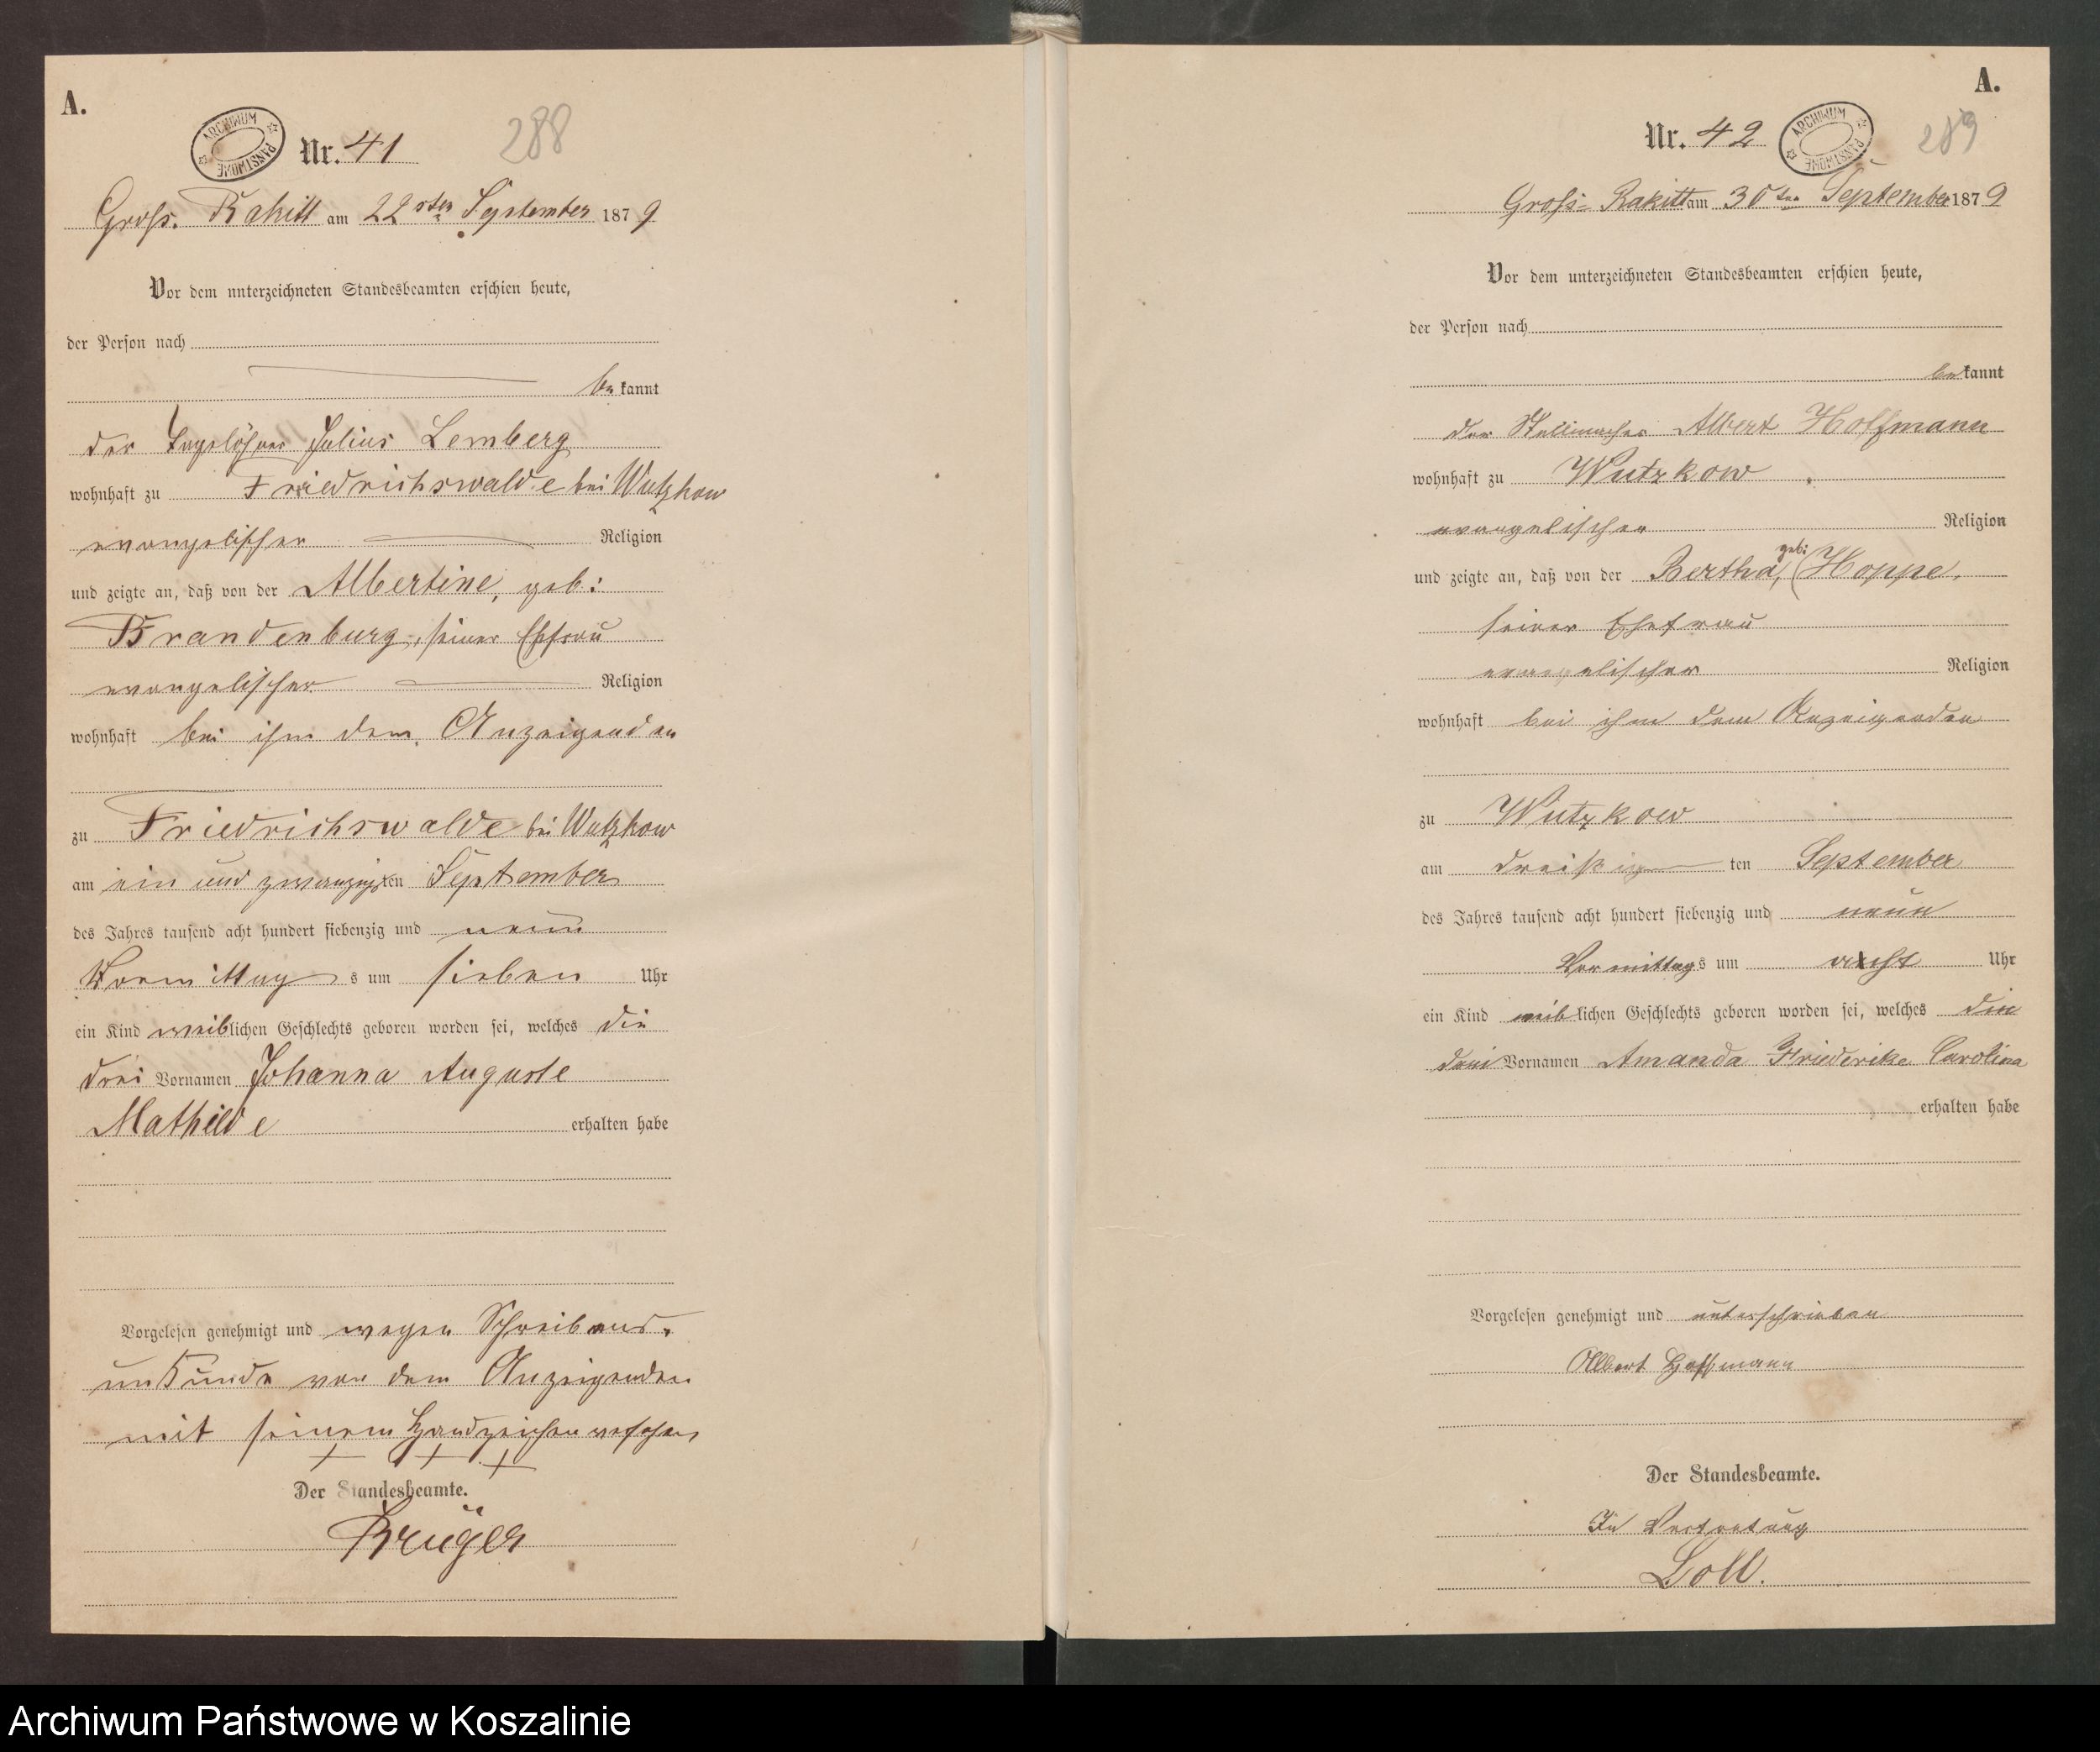 A.
ARCHIWUM PAŃSTWOWE
Nr. 41
288
Gross. Rakitt am 22sten September 1879
Vor dem unterzeichneten Standesbeamten erschien heute,
der Person nach
bekannt
der Tagelöhner Julius Lemberg
wohnhaft zu Friedrichswalde bei Wutzkow
evangelischer Religion
und zeigte an, daß von der Albertine, geb:
Brandenburg, seiner Ehefrau
evangelischer Religion
wohnhaft bei ihm dem Anzeigenden
zu Friedrichswalde bei Wutzkow
am ein und zwanzigsten September
des Jahres tausend acht hundert siebenzig und neun
Vormittags um sieben Uhr
ein Kind weiblichen Geschlechts geboren worden sei, welches die
drei Vornamen Johanna Auguste
Mathilde erhalten habe
Vorgelesen genehmigt und wegen Schreibens-
unkunde von dem Anzeigenden
mit seinem Handzeichen versehen
+ + +
Der Standesbeamte.
Krüger
A.
Nr. 42
ARCHIWUM PAŃSTWOWE
289
Gross-Rakitt am 30ten September 1879
Vor dem unterzeichneten Standesbeamten erschien heute,
der Person nach
bekannt
der Stellmacher Albert Hoffmann
wohnhaft zu Wutzkow
evangelischer Religion
und zeigte an, daß von der Bertha, geb: Hoppe,
seiner Ehefrau
evangelischer Religion
wohnhaft bei ihm dem Anzeigenden
zu Wutzkow
am dreißigten September
des Jahres tausend acht hundert siebenzig und neun
Vormittags um acht Uhr
ein Kind weiblichen Geschlechts geboren worden sei, welches die
drei Vornamen Amanda Friederike Carolina
erhalten habe
Vorgelesen genehmigt und unterschrieben
Albert Hoffmann
Der Standesbeamte.
In Vertretung
Loll.
Archiwum Państwowe w Koszalinie